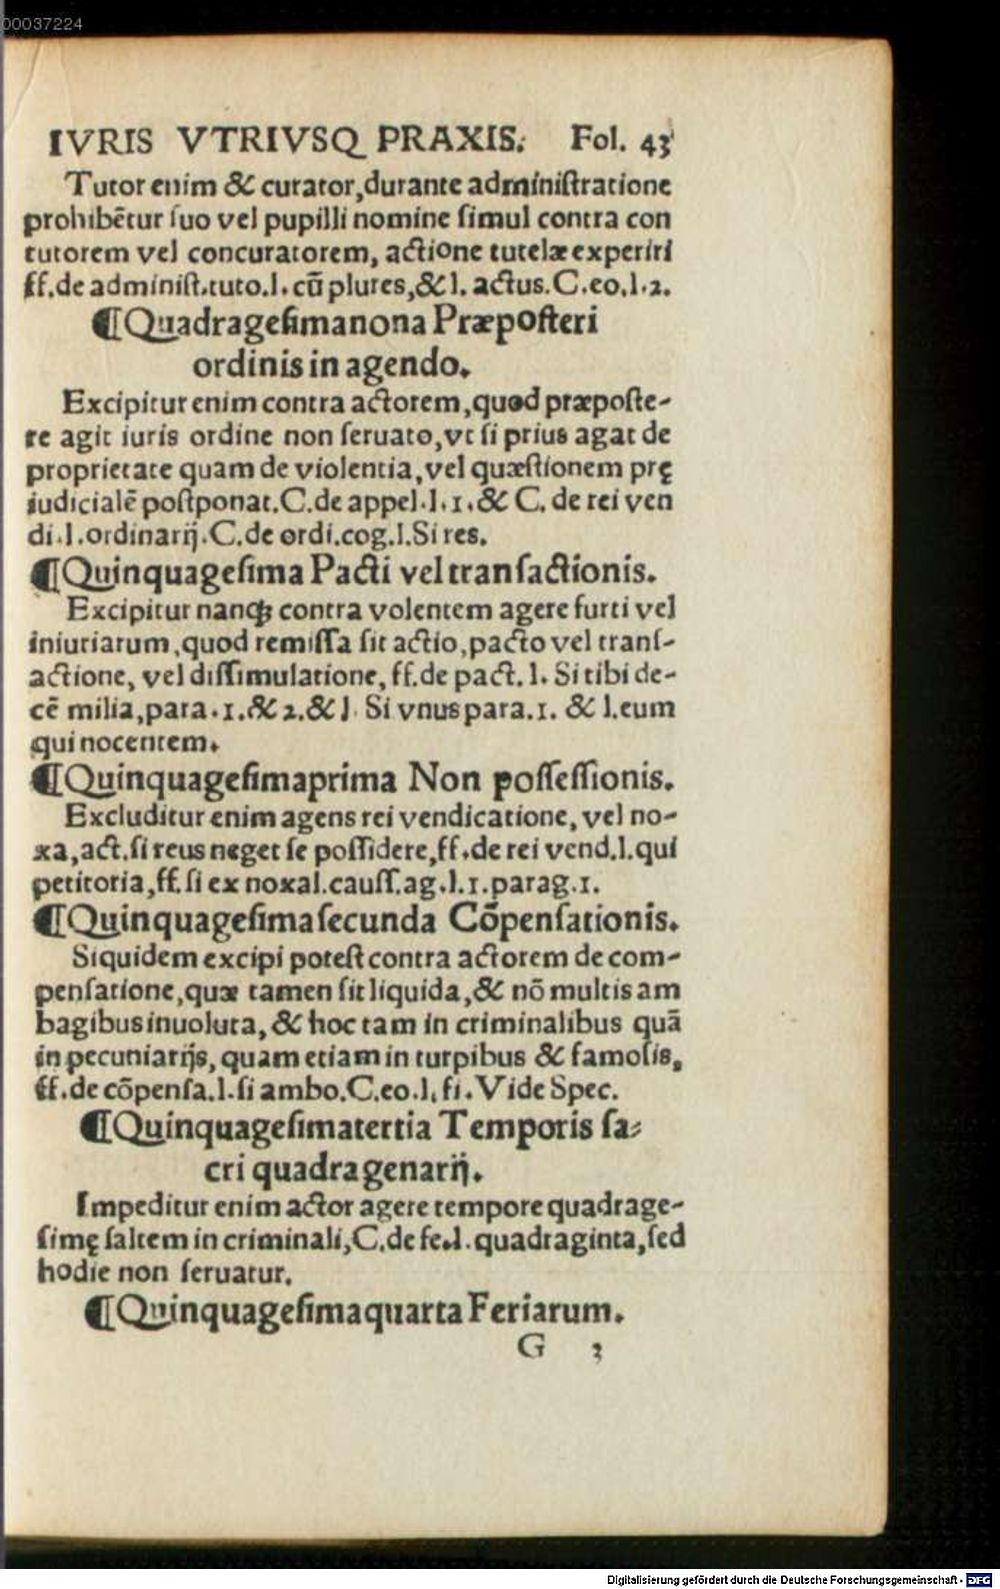 00037224
IVRIS VTRIVSQ PRAXIS. Fol. 43
Tutor enim & curator, durante administratione
prohibētur suo vel pupilli nomine simul contra con
tutorem vel concuratorem, actione tutelæ experiri
ff. de administ. tuto. l. cū plures, & l. actus. C. eo. l. 2.
¶Quadragesimanona Præposteri
ordinis in agendo.
Excipitur enim contra actorem, quod præposte-
re agit iuris ordine non seruato, vt si prius agat de
proprietate quam de violentia, vel quæstionem prę
iudicialē postponat. C. de appel. l. 1. & C. de rei ven
di. l. ordinarij. C. de ordi. cog. l. Si res.
¶Quinquagesima Pacti vel transactionis.
Excipitur nanqꝫ contra volentem agere furti vel
iniuriarum, quod remissa sit actio, pacto vel trans-
actione, vel dissimulatione, ff. de pact. l. Si tibi de-
cē milia, para. 1. & 2. & l. Si vnus para. 1. & l. eum
qui nocentem.
¶Quinquagesimaprima Non possessionis.
Excluditur enim agens rei vendicatione, vel no-
xa, act. si reus neget se possidere, ff. de rei vend. l. qui
petitoria, ff. si ex noxal. causs. ag. l. 1. parag. 1.
¶Quinquagesimasecunda Cōpensationis.
Siquidem excipi potest contra actorem de com-
pensatione, quæ tamen sit liquida, & nō multis am
bagibus inuoluta, & hoc tam in criminalibus quā
in pecuniarijs, quam etiam in turpibus & famosis,
ff. de cōpensa. l. si ambo. C. eo. l. fi. Vide Spec.
¶Quinquagesimatertia Temporis sa-
cri quadragenarij.
Impeditur enim actor agere tempore quadrage-
simę saltem in criminali, C. de fe. l. quadraginta, sed
hodie non seruatur.
¶Quinquagesimaquarta Feriarum.
G 3
Digitalisierung gefördert durch die Deutsche Forschungsgemeinschaft - DFG